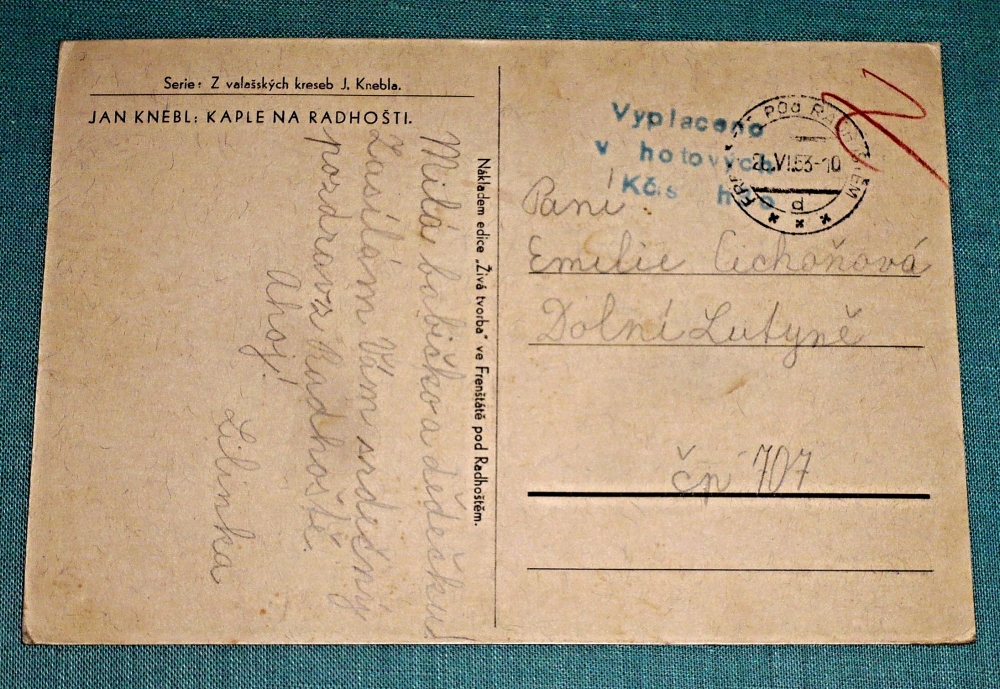 Serie: Z valašských kreseb J. Knebla.
JAN KNEBL: KAPLE NA RADHOŠTI.
Milá babičko a dědečku!
Zasílám Vám srdečný
pozdrav z Radhoště.
Ahoj!
Libinka
Nákladem edice „Živá tvorba" ve Frenštátě pod Radhoštěm.
Vyplaceno
v hotových
Kčs h
POD RADHOŠTĚM
26.VI.53-10
d
Paní
Emilie Cichoňová
Dolní Lutyně
čp 707